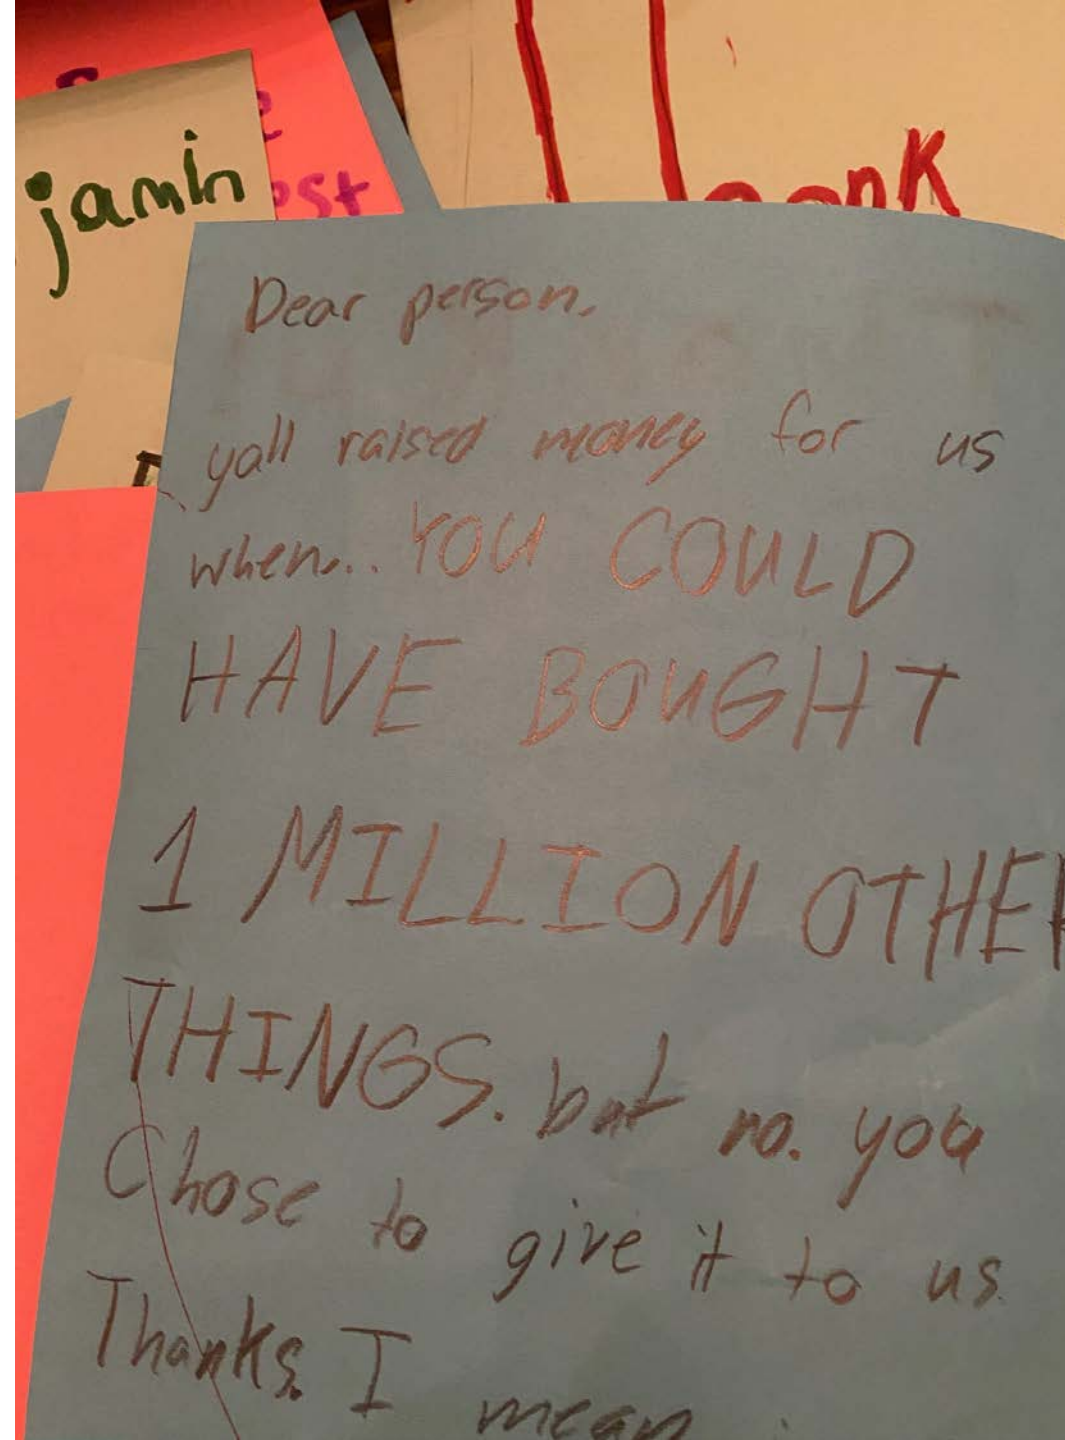 jamin
est
Dear person,
yall raised money for us
when.. YOU COULD
HAVE BOUGHT
1 MILLION OTHER
THINGS. but no. you
Chose to give it to us
Thanks. I mean